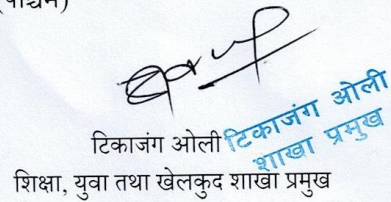 (पश्चिम)
टिकाजंग ओली
टिकाजंग ओली
शाखा प्रमुख
शिक्षा, युवा तथा खेलकुद शाखा प्रमुख